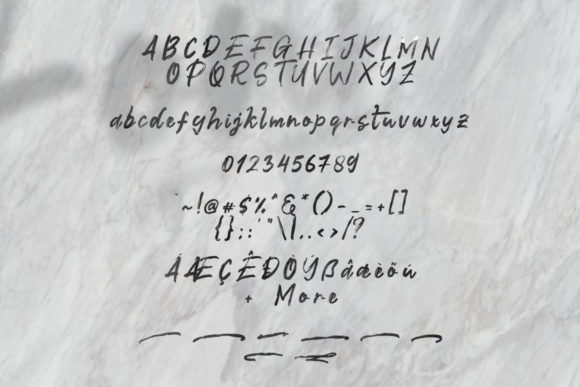 ABCDEFGHIJKLMN
OPQRSTUVWXYZ
abcdefghijklmnopqrstuvwxyz
0123456789
`~!@#$%^&*()-_=+[]
{}:;'"\|,.<>/?
ÁÆÇÊÐÒÝßåæèõú
+ More